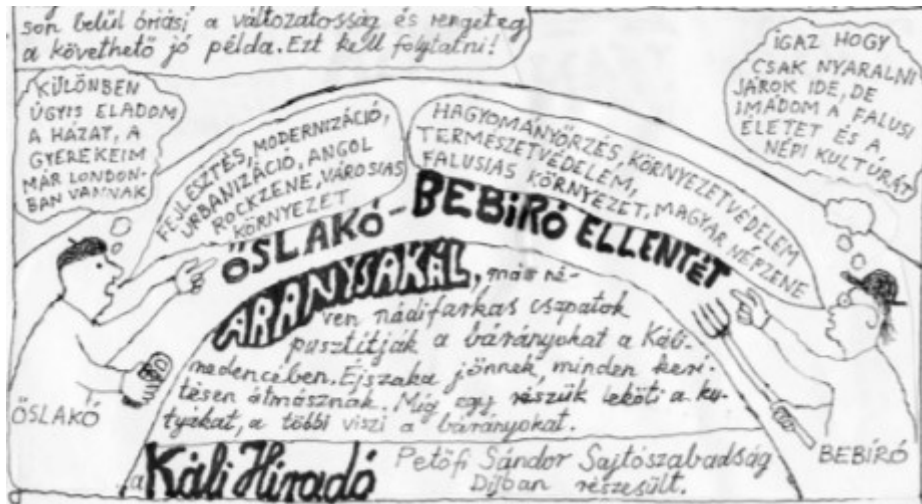 son belül óriási a változatosság és rengeteg
a követhető jó példa. Ezt kell folytatni!
KÜLÖNBEN
ÚGYIS ELADOM
A HÁZAT, A
GYEREKEIM
MÁR LONDON-
BAN VANNAK
FEJLESZTÉS, MODERNIZÁCIÓ,
URBANIZÁCIÓ, ANGOL
ROCKZENE, VÁROSIAS
KÖRNYEZET
HAGYOMÁNYŐRZÉS, KÖRNYEZETVÉDELEM
TERMÉSZETVÉDELEM,
FALUSIAS KÖRNYEZET, MAGYAR NÉPZENE
IGAZ HOGY
CSAK NYARALNI
JÁROK IDE, DE
IMÁDOM A FALUSI
ÉLETET ÉS A
NÉPI KULTÚRÁT
ŐSLAKÓ-BEBÍRÓ ELLENTÉT
ARANYSAKÁL, más né-
ven nádifarkas csapatok
pusztítják a bárányokat a Káli-
medencében. Éjszaka jönnek, minden kerí-
tésen átmásznak. Míg egy részük leköti a ku-
tyákat, a többi viszi a bárányokat.
ŐSLAKÓ
BEBÍRÓ
a Káli Híradó Petőfi Sándor Sajtószabadság
Díjban részesült.